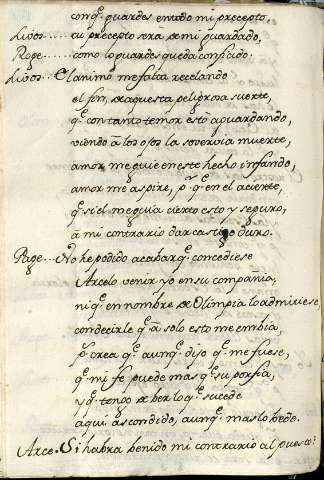 conq̃ guardes en todo mi precepto.
tu precepto sera de mi guardado,
Page.... como lo guardes queda confiado.
El animo me falta recelando
el fin, de aquesta peligrosa suerte,
q̃ con tanto temor estoy aguardando,
viendo a los ojos la sobervia muerte,
amor me guie en este hecho infando,
amor me aspire, p.ª q̃ en el acierte,
q̃ si el me guia cierto estoy y seguro,
a mi contrario dar castigo duro.
Page... No he podido acabar q̃ concediese
Arcelo venir yo en su compañia,
ni q̃ en nombre de Olimpia lo admitiese,
con decirle q̃ a solo esto me embia,
p.º crea q̃ aunq̃ dijo q̃ me fuese,
q̃ mi fe puede mas q̃ su porfia,
y q̃ tengo de ber lo q̃ sucede
aqui ascondido, aunq̃ mas lo bede.
Arce. Si habra benido mi contrario al puesto?